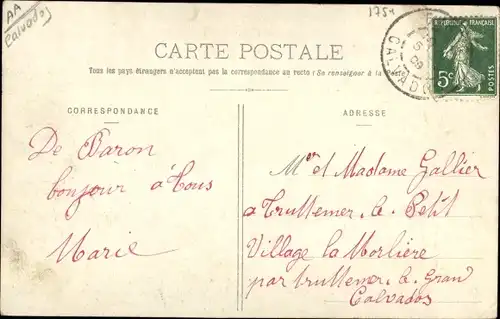 AA
Calvados
1754
CARTE POSTALE
Tous les pays étrangers n'acceptent pas la correspondance au recto (Se renseigner à la
RÉPUBLIQUE FRANÇAISE
5c
POSTES
CORRESPONDANCE
ADRESSE
De Baron
bonjour à tous
Marie
Mr et Madame Gallier
a Truttemer. le. Petit
Village la Morlière
par truttemer. le. Gran
Calvados